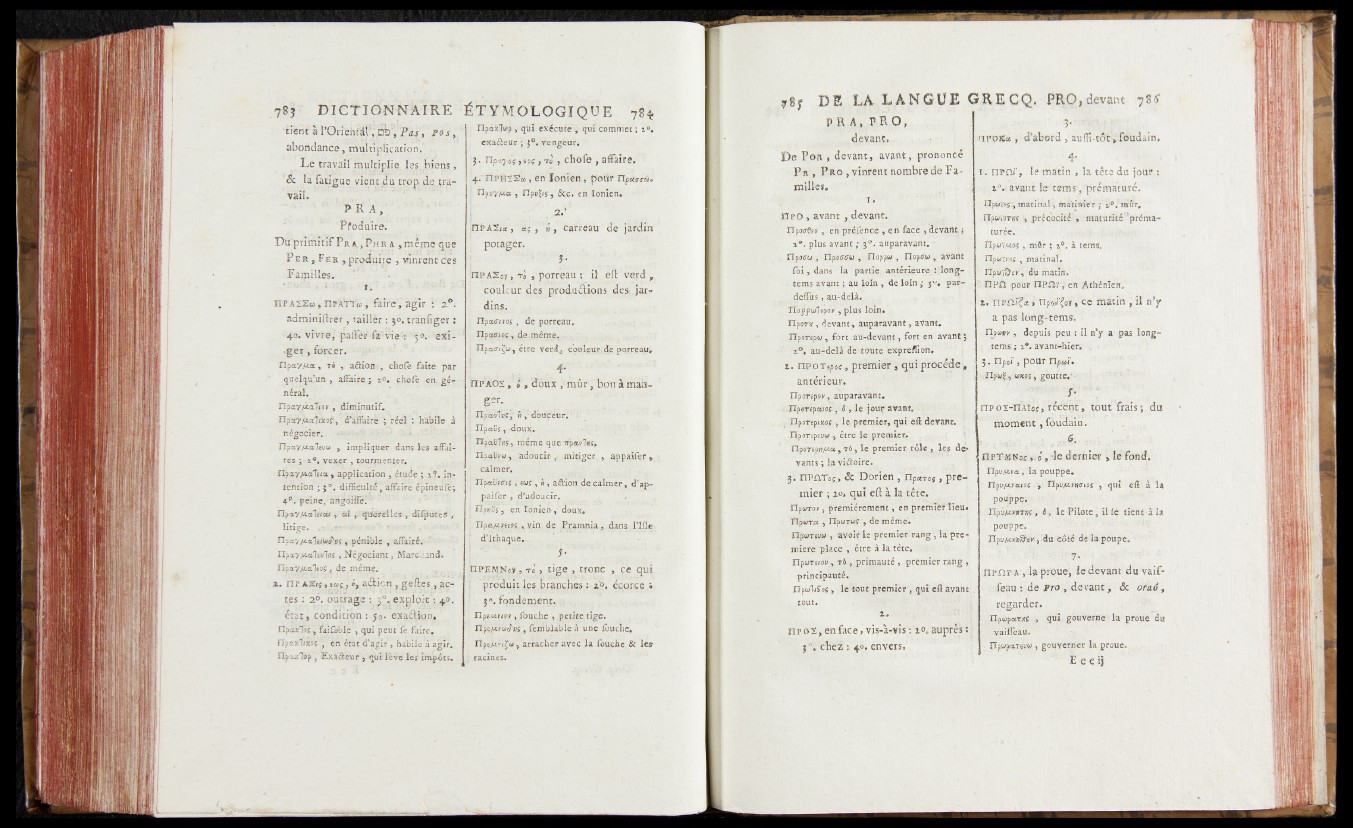 783 DICTIONNAIRE ÉTYMOLOGIQUE 784
tient à l'Oriental, Pas, pos,
abondance, multiplication.
Le travail multiplie les biens,
& la fatigue vient du trop de tra-
vail.
PRA,
Produire.
Du primitif PRA, PHRA, même que
PER, FER, produire, vinrent ces
Familles.
1.
ΠΡΑΣΣω, ΠΡΑΤΤω, faire, agir : 2°.
administrer, tailler : 3°. transiger :
4°. vivre, passer sa vie : 5°. exi-
ger, forcer.
Πραγμα, τὸ, action, chose faite par
quelqu'un, affaire ; 2°. chose en gé-
néral.
Πραγμαlιον, diminutif.
Πραγμαlικος, d'affaire ; réel : habile à
négocier.
Πραγμαlευω, impliquer dans les affai-
res ; 2°. vexer, tourmenter.
Πραγμαlεια, application, étude ; 2°. in-
tention ; 3°. difficulté, affaire épineuse;
4°. peine, angoisse.
Πραγμαlειαι, αἱ, querelles, disputes,
litige.
Πραγμαlειωδης, pénible, affairé.
Πραγμαlευlης, Négociant, Marchand.
Πραγμαlευς, de même.
2. ΠΡΑΞις, εως, ἡ, action, gestes, ac-
tes : 2°. outrage : 3°. exploit : 4°.
état, condition : 5°. exaction.
Πρακlος, faisable, qui peut se faire.
Πρακlικος, en état d'agir, habile à agir.
Πρακlηρ, Exacteur, qui lève les impôts.
Πρακlωρ, qui exécute, qui commet ; 2°.
exacteur ; 3°. vengeur.
3. Πραγος, εος, τὸ, chose, affaire.
4. ΠΡΗΣΣω, en Ionien, pour Πρασσω.
Πρηγμα, Πρηξις, &c. en Ionien.
2.
ΠΡΑΣια, ας, ἡ, carreau de jardin
potager.
3.
ΠΡΑΣον, τὸ, porreau ; il est verd,
couleur des productions des jar-
dins.
Πρασιος, de porreau.
Πρασιος, de même.
Πρασιζω, être verd, couleur de porreau.
4.
ΠΡΑΟΣ, ὁ, doux, mûr, bon à man-
ger.
Πραοlης, ἡ, douceur.
Πραυς, doux.
Πραυlης, même que πραοlης.
Πραυνω, adoucir, mitiger, appaiser,
calmer.
Πραυνσις, εως, ἡ, action de calmer, d'ap-
paiser, d'adoucir.
Πρηυς, en Ionien, doux.
Πραμνειος, vin de Pramnia, dans l'Isle
d'Ithaque.
5.
ΠΡΕΜΝον, τὸ, tige, tronc, ce qui
produit les branches : 2°. écorce :
3°. fondement.
Πρεμνιον, souche, petite tige.
Πρεμνωδης, semblable à une souche.
Πρεμνιζω, arracher avec la souche & les
racines.
785 DE LA LANGUE GRECQ. PRO, devant 786
PRA, PRO,
devant.
De Por, devant, avant, prononcé
PR, PRO, vinrent nombre de Fa-
milles.
1.
ΠΡΟ, avant, devant.
Προσθεν, en présence, en face, devant ;
2°. plus avant ; 3°. auparavant.
Προσω, Προσσω, Πορρω, Πορσω, avant
soi, dans la partie antérieure : long-
tems avant ; au loin, de loin ; 3°. par-
dessus, au-delà.
Πορρωlερον, plus loin.
Προτι, devant, auparavant, avant.
Προτερω, fort au-devant, fort en avant ;
2°. au-delà de toute expression.
2. ΠΡΟΤερος, premier, qui procéde,
antérieur.
Προτερον, auparavant.
Προτεραιος, ὁ, le jour avant.
Προτερικος, le premier, qui est devant.
Προτερευω, être le premier.
Προτερημα, τὸ, le premier rôle, les de-
vants ; la victoire.
3. ΠΡΩΤος, & Dorien, Πρατος, pre-
mier ; 2°. qui est à la tête.
Πρωτον, premiérement, en premier lieu.
Πρωτα, Πρωτως, de même.
Πρωτευω, avoir le premier rang, la pre-
miere place, être à la tête.
Πρωτειον, τὸ, primauté, premier rang,
principauté.
Πρωlιςος, le tout premier, qui est avant
tout.
2.
ΠΡΟΣ, en face, vis-à-vis : 2°. auprès :
3°. chez : 4°. envers.
3.
ΠΡΟΚα, d'abord, aussi-tôt, soudain.
4.
1. ΠΡΩΪ, le matin, la tête du jour :
2°. avant le tems, prématuré.
Πρωιος, matinal, matinier ; 2°. mûr.
Πρωιοτης, précocité, maturité préma-
turée.
Πρωϊμος, mûr ; 2°. à tems.
Πρωινος, matinal.
Πρωϊθεν, du matin.
ΠΡΩ pour ΠΡΩΪ, en Athénien.
2. ΠΡΩΪζα, Πρωϊζον, ce matin, il n'y
a pas long-tems.
Πρωην, depuis peu : il n'y a pas long-
tems ; 2°. avant-hier.
3. Προϊ, pour Πρωϊ.
Πρωξ, ωκος, goutte.
5.
ΠΡΟΣ-ΠΑΙος, récent, tout frais ; du
moment, soudain.
6.
ΠΡΥΜΝος, ὁ, le dernier, le fond.
Πρυμνα, la pouppe.
Πρυμναιος, Πρυμνησιος, qui est à la
pouppe.
Πρυμνητης, ὁ, le Pilote, il se tient à la
pouppe.
Πρυμνηθεν, du côté de la poupe.
7.
ΠΡΩΡΑ, la proue, le devant du vais-
seau : de pro, devant, & oraó,
regarder.
Πρωρατης, qui gouverne la proue du
vaisseau.
Πρωρατευω, gouverner la proue.
E e e ij